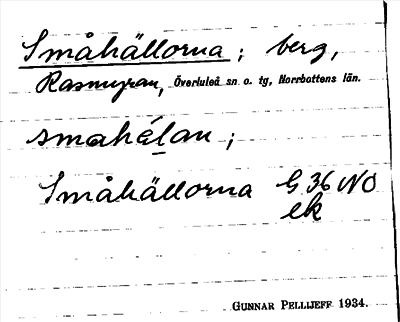 Småhällorna; berg,
Rasmyran, Överluleå sn. o. tg, Norrbottens län.
smahélan;
Småhällorna G 36 NO
ek
GUNNAR PELLIJEFF 1934.